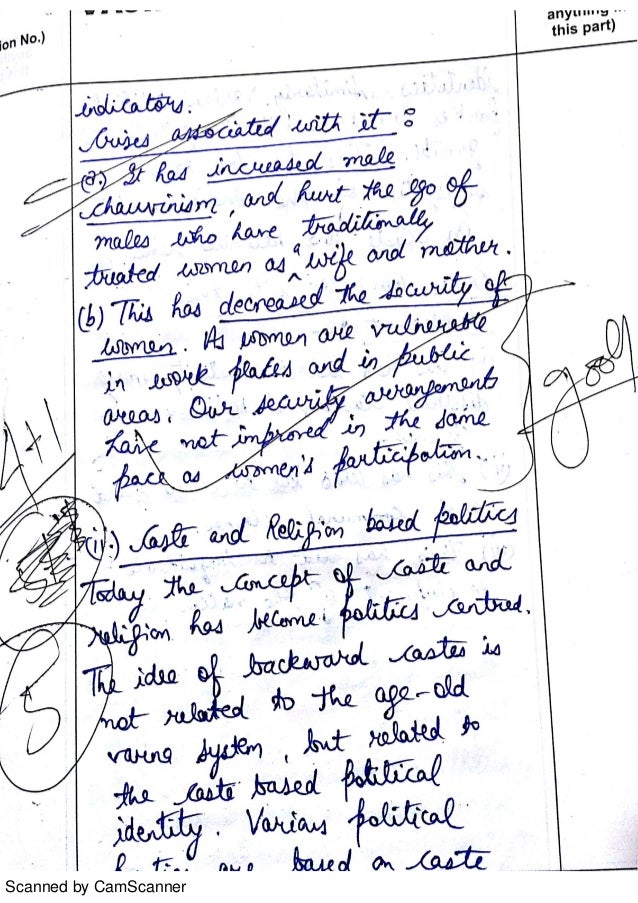 ion No.)
this part)
indicators.
Crises associated with it :
(a.) It has increased male
chauvinism, and hurt the ego of
males who have traditionally
treated women as a wife and mother.
(b) This has decreased the security of
women. As women are vulnerable
in work places and in public
areas. Our security arrangements
have not improved in the same
pace as women's participation.
good
4+1
(ii.) Caste and Religion based politics
Today the concept of caste and
religion has become politics centred.
The idea of backward castes is
not related to the age-old
varna system, but related to
the caste based political
identity. Various political
based on caste
5
Scanned by CamScanner